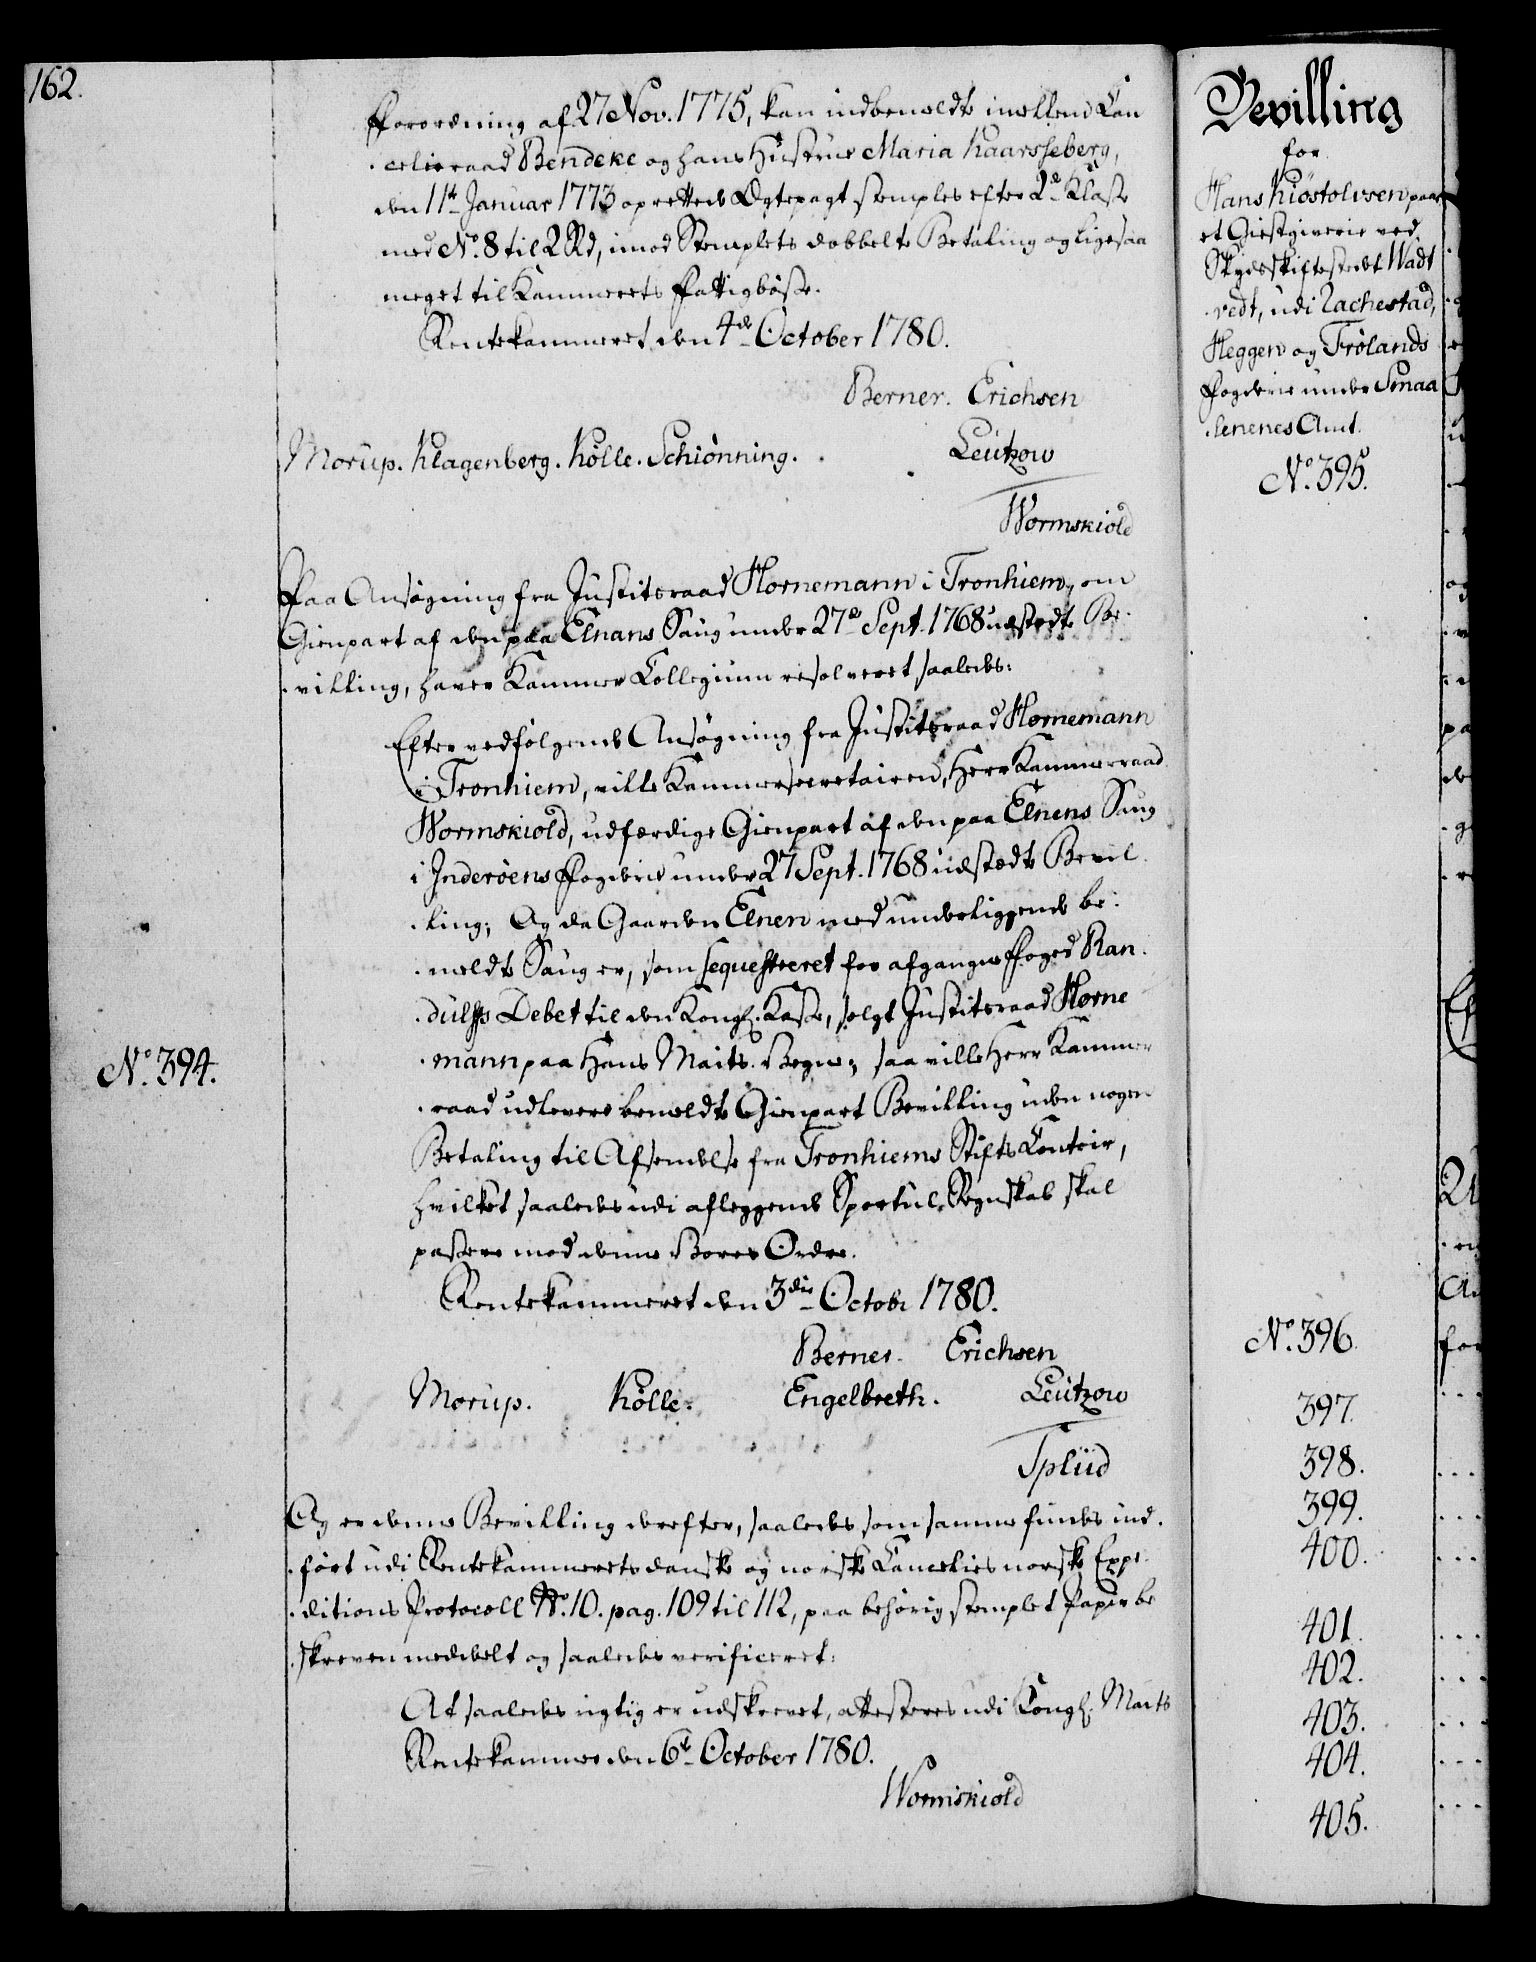 162.
Forordning af 27 Nov. 1775, kan indbemeldte imellem Can
-celieraad Bendeke og hans Hustrue Maria Kaarsseberg,
den 11te Januar 1773 oprettede Ægtepagt stemples efter 2de Klasse
med No. 8 til 2 Rd, imod Stemplets dobbelte Betaling og ligesaa
meget til Kammerets Fattigbösse.
Rentekammeret den 4de October 1780.
Berner. Erichsen
Morup. Klagenberg. Kölle. Schiönning. Leützow
Wormskiold
Paa Ansögning fra Justitsraad Hornemann i Tronhiem, om
Gienpart af den paa Elnans Saug under 27de Sept. 1768 udstedte Be-
-villing, haver Kammer Collegium resolveret saaledes:
No. 394.
Efter vedfölgende Ansögning fra Justitsraad Hornemann
i Tronhiem, ville Kammersecretairen, Herr Kammerraad
Wormskiold, udfærdige Gienpart af den paa Elnens Saug
i Inderöens Fogderie under 27 Sept. 1768 udstædte Bevil-
-ling; Og da Gaarden Elnen med underliggende be-
-meldte Saug er, som sequestreret for afgangne Foged Ran-
-dulffs Debet til den Kongl. Kasse, solgt Justitsraad Horne
-mann paa Hans Maits. Vegne; saa ville Herr Kammer
-raad udlevere bemeldte Gienpart Bevilling uden nogen
Betaling til Afsendelse fra Tronhiems Stifts Contoir,
hvilket saaledes udi aflæggende Sportul-Regnskab skal
passere med denne Vores Ordre.
Rentekammeret den 3die Octobr 1780.
Berner. Erichsen
Morup. Kölle. Engelbreth. Leützow
Tplüd
Og er denne Bevilling derefter, saaledes som samme findes ind-
-fört udi Rentekammerets danske og norske Cancelies norske Expe-
-ditions Protocoll No. 10. pag. 109 til 112, paa behörig stemplet Papir be
-skreven meddelt og saaledes verificeret:
At saaledes rigtig er udskrevet, attesteres udi Kongl. Maits
Rentekammer den 6te October 1780.
Wormskiold
Bevilling
for
Hans Kiöstolvsen paa
et Giestgiverie ved
Skydsskiftestedet Wadt
-vedt, udi Rachestad,
Heggen og Frölands
Fogderie under Smaa
-lenenes Amt.
No. 395.
No. 396.
397.
398.
399.
400.
401.
402.
403.
404.
405.